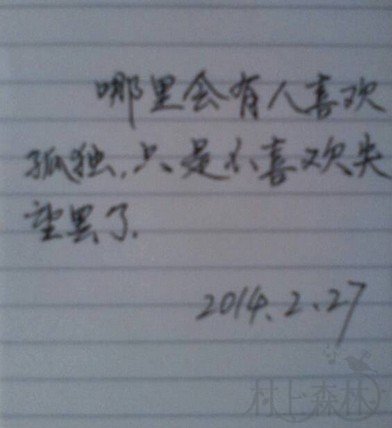 哪里会有人喜欢
孤独,只是不喜欢失
望罢了.
2014.2.27
村上森林